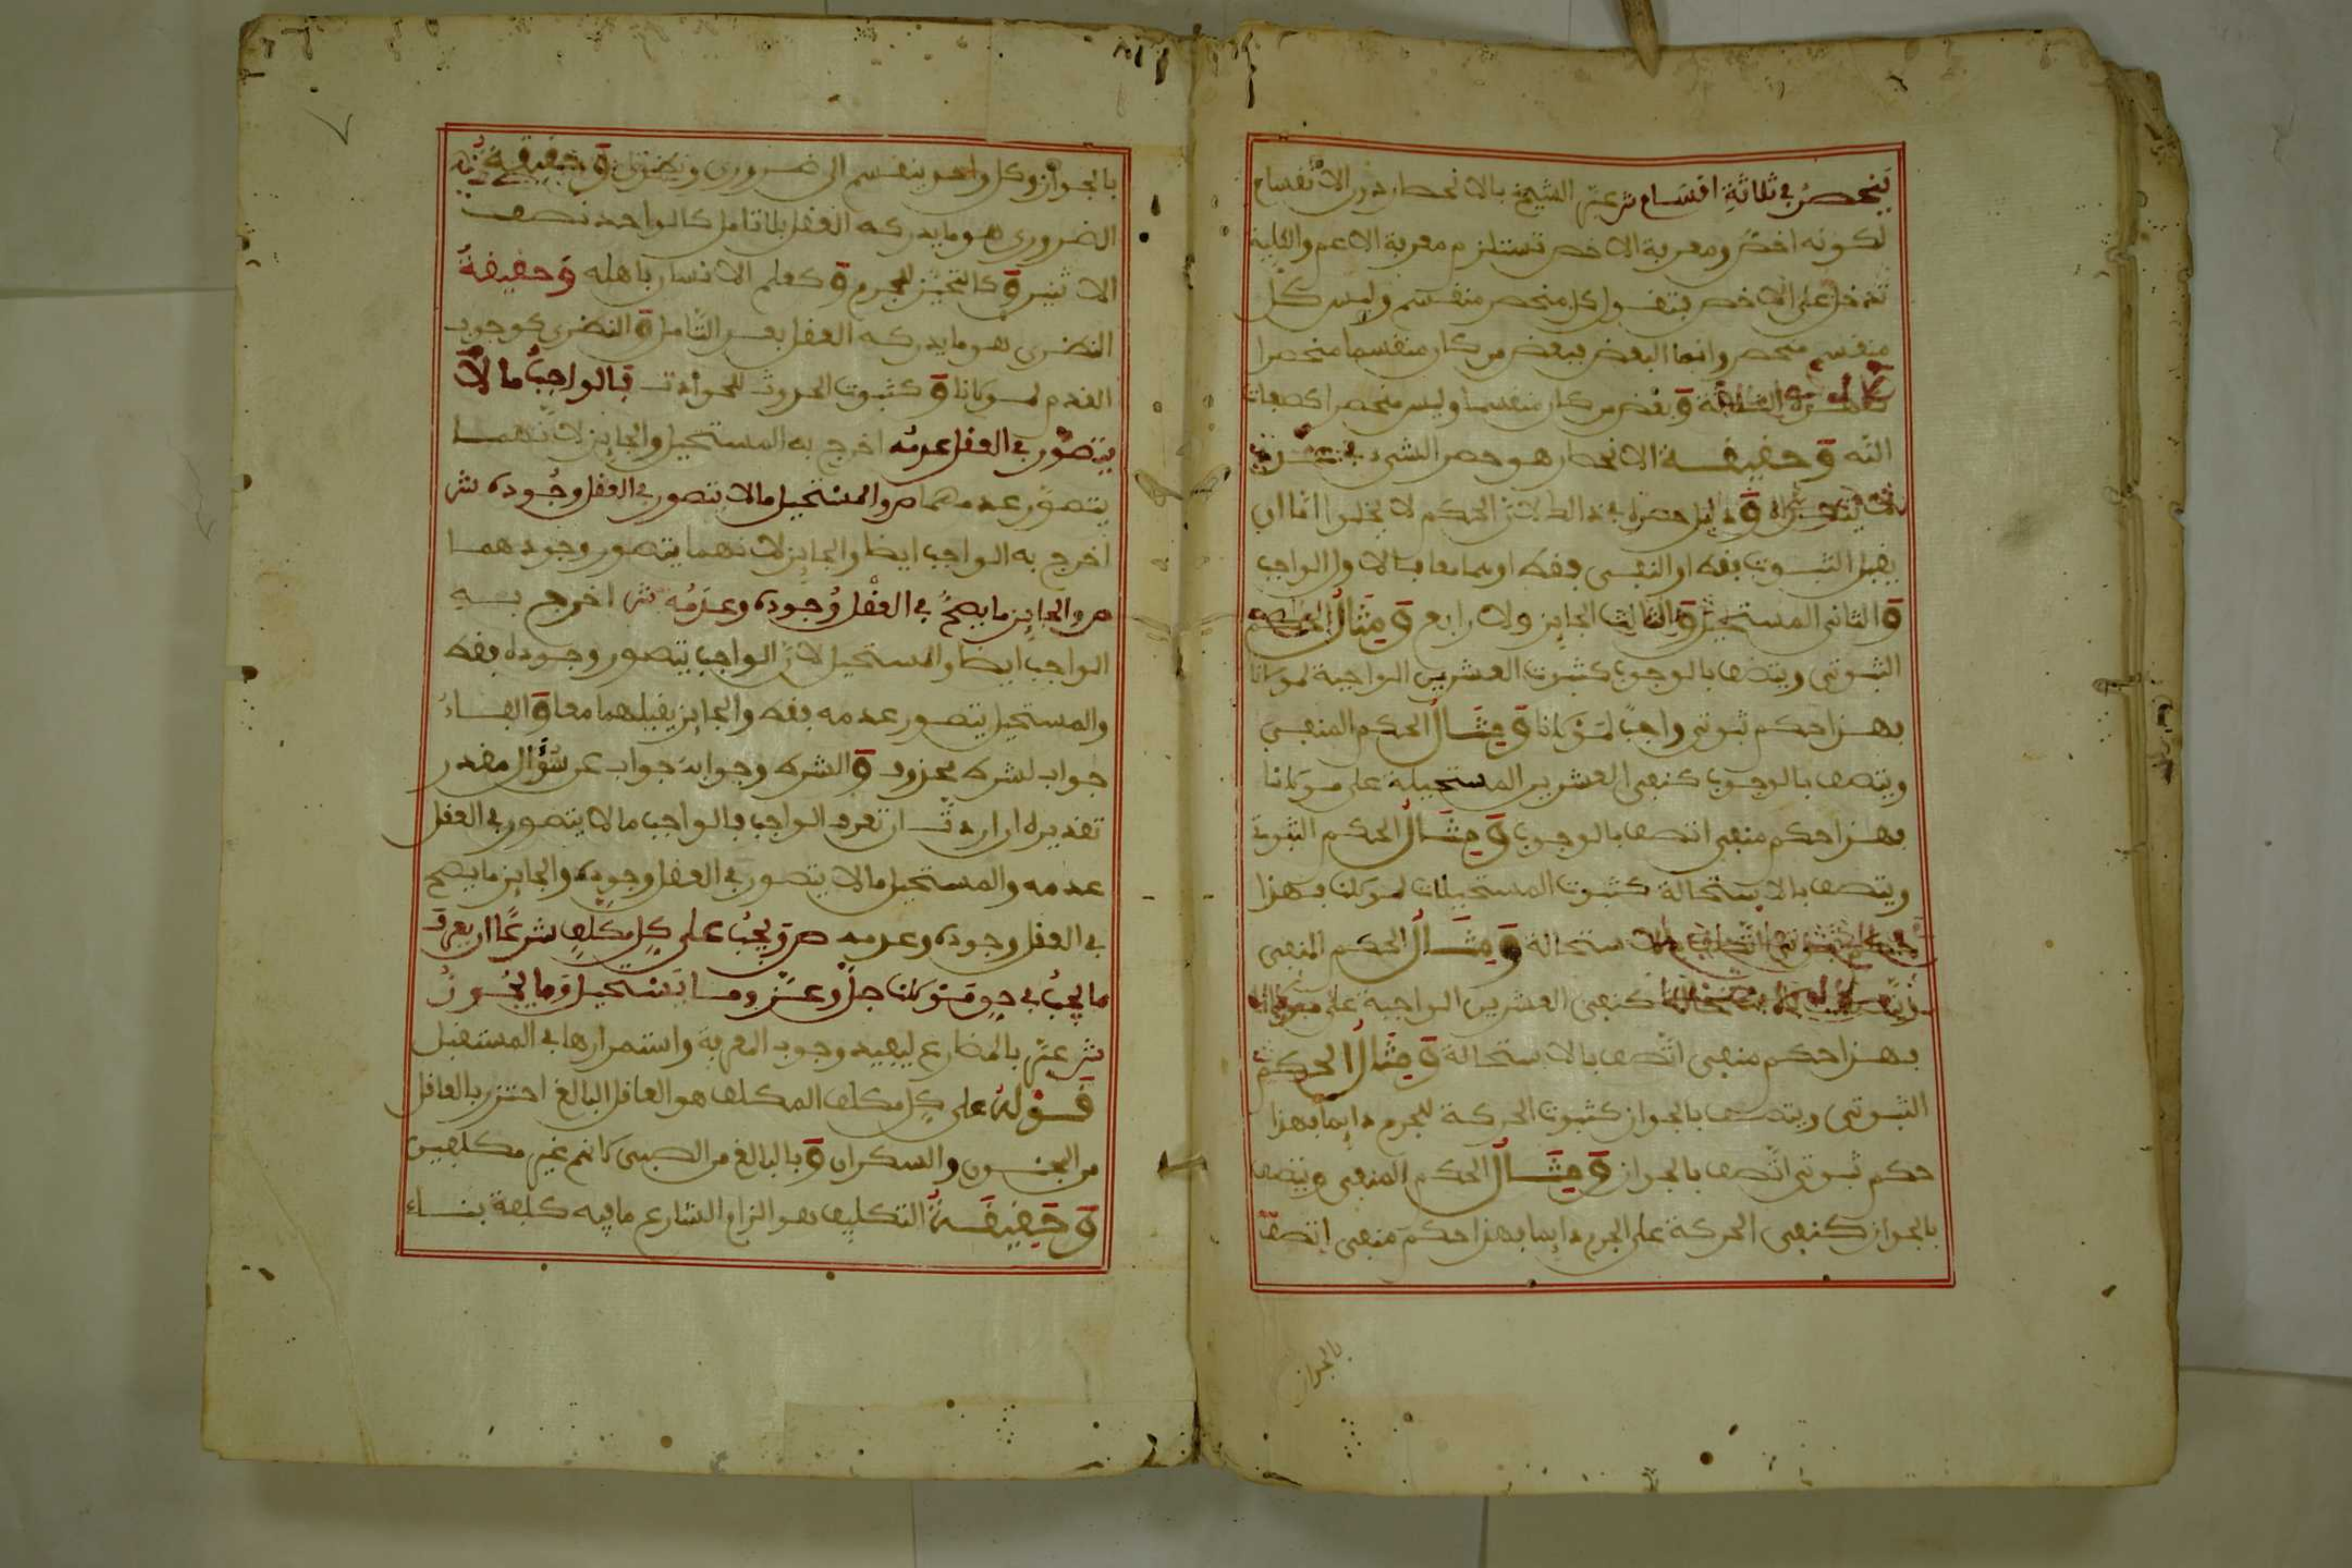 ينحصر في ثلاثة اقسام ش عبّر الشيخ بالانحصار دون الانقسام
لكونه اخص ومعرفة الاخص تستلزم معرفة الاعم والغاية
تدخل على الاخص فتقول كل منحصر منقسم وليس كل
منقسم منحصر وانما البعض فبعض من كان منقسما منحصرا
وبعض من كان منقسما وليس منحصرا كصفات
الله وحقيقة الانحصار هو حصر الشيء في
ودليل حصره في ذلك لان الحكم لا يخلوا اما ان
يقبل الثبوت فقط او النفي فقط او هما معا فالاول الواجب
والثاني المستحيل والثالث الجايز ولا رابع ومثال الحكم
الثبوتي ويتصف بالوجوب كثبوت العشرين الواجبة لمولانا
فهذا حكم ثبوتي واجب لمولانا ومثال الحكم المنفي
ويتصف بالوجوب كنفي العشرين المستحيلة على مولانا
فهذا حكم منفي اتصف بالوجوب ومثال الحكم الثبوتي
ويتصف بالاستحالة كثبوت المستحيلات لمولانا فهذا
حكم ثبوتي اتصف بالاستحالة ومثال الحكم المنفي
ويتصف بالاستحالة كنفي العشرين الواجبة على مولانا
فهذا حكم منفي اتصف بالاستحالة ومثال الحكم
الثبوتي ويتصف بالجواز كثبوت الحركة للجرم دايما فهذا
حكم ثبوتي اتصف بالجواز ومثال الحكم المنفي ويتصف
بالجواز كنفي الحركة على الجرم دايما فهذا حكم منفي اتصف
بالجواز
بالجواز وكل واحد ينقسم الى ضروري ونظري وحقيقة
الضروري هو ما يدركه العقل بلا تامل كالواحد نصف
الاثنين وكالتحيز للجرم وكعلم الانسان باهله وحقيقة
النظري هو ما يدركه العقل بعد التامل والنظر كوجوب
القدم لمولانا وكثبوت الحدوث للحوادث فالواجب ما لا
يتصور في العقل عدمه اخرج به المستحيل والجايز لانهما
يتصور عدمهما ص والمستحيل ما لا يتصور في العقل وجوده ش
اخرج به الواجب ايضا والجايز لانهما يتصور وجودهما
ص والجايز ما يصح في العقل وجوده وعدمه ش اخرج به
الواجب ايضا والمستحيل لان الواجب يتصور وجوده فقط
والمستحيل يتصور عدمه فقط والجايز يقبلهما معا والفاء
جواب لشرط محذوف والشرط وجوابه جواب عن سؤال مقدر
تقديره ان اردت ان تعرف الواجب فالواجب ما لا يتصور في العقل
عدمه والمستحيل ما لا يتصور في العقل وجوده والجايز ما يصح
في العقل وجوده وعدمه ص ويجب على كل مكلف شرعا ان يعرف
ما يجب في حق مولانا جل وعز وما يستحيل وما يجوز
ش عبّر بالمضارع ليفيد وجوب المعرفة واستمرارها في المستقبل
قوله على كل مكلف المكلف هو العاقل البالغ احترز بالعاقل
من المجنون والسكران وبالبالغ من الصبي فانهم غير مكلفين
وحقيقة التكليف هو الزام الشارع ما فيه كلفة بناء